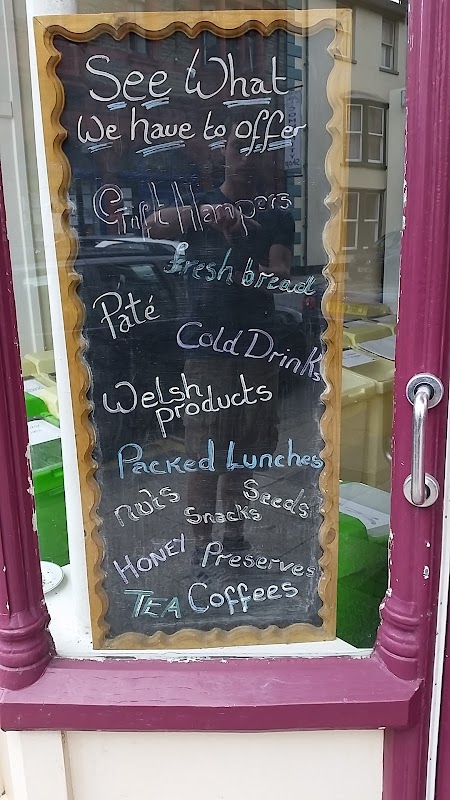 See What
We have to offer
Gift Hampers
fresh bread
Pâté
Cold Drinks
Welsh
products
Packed Lunches
nuts Seeds
Snacks
Honey Preserves
TEA Coffees